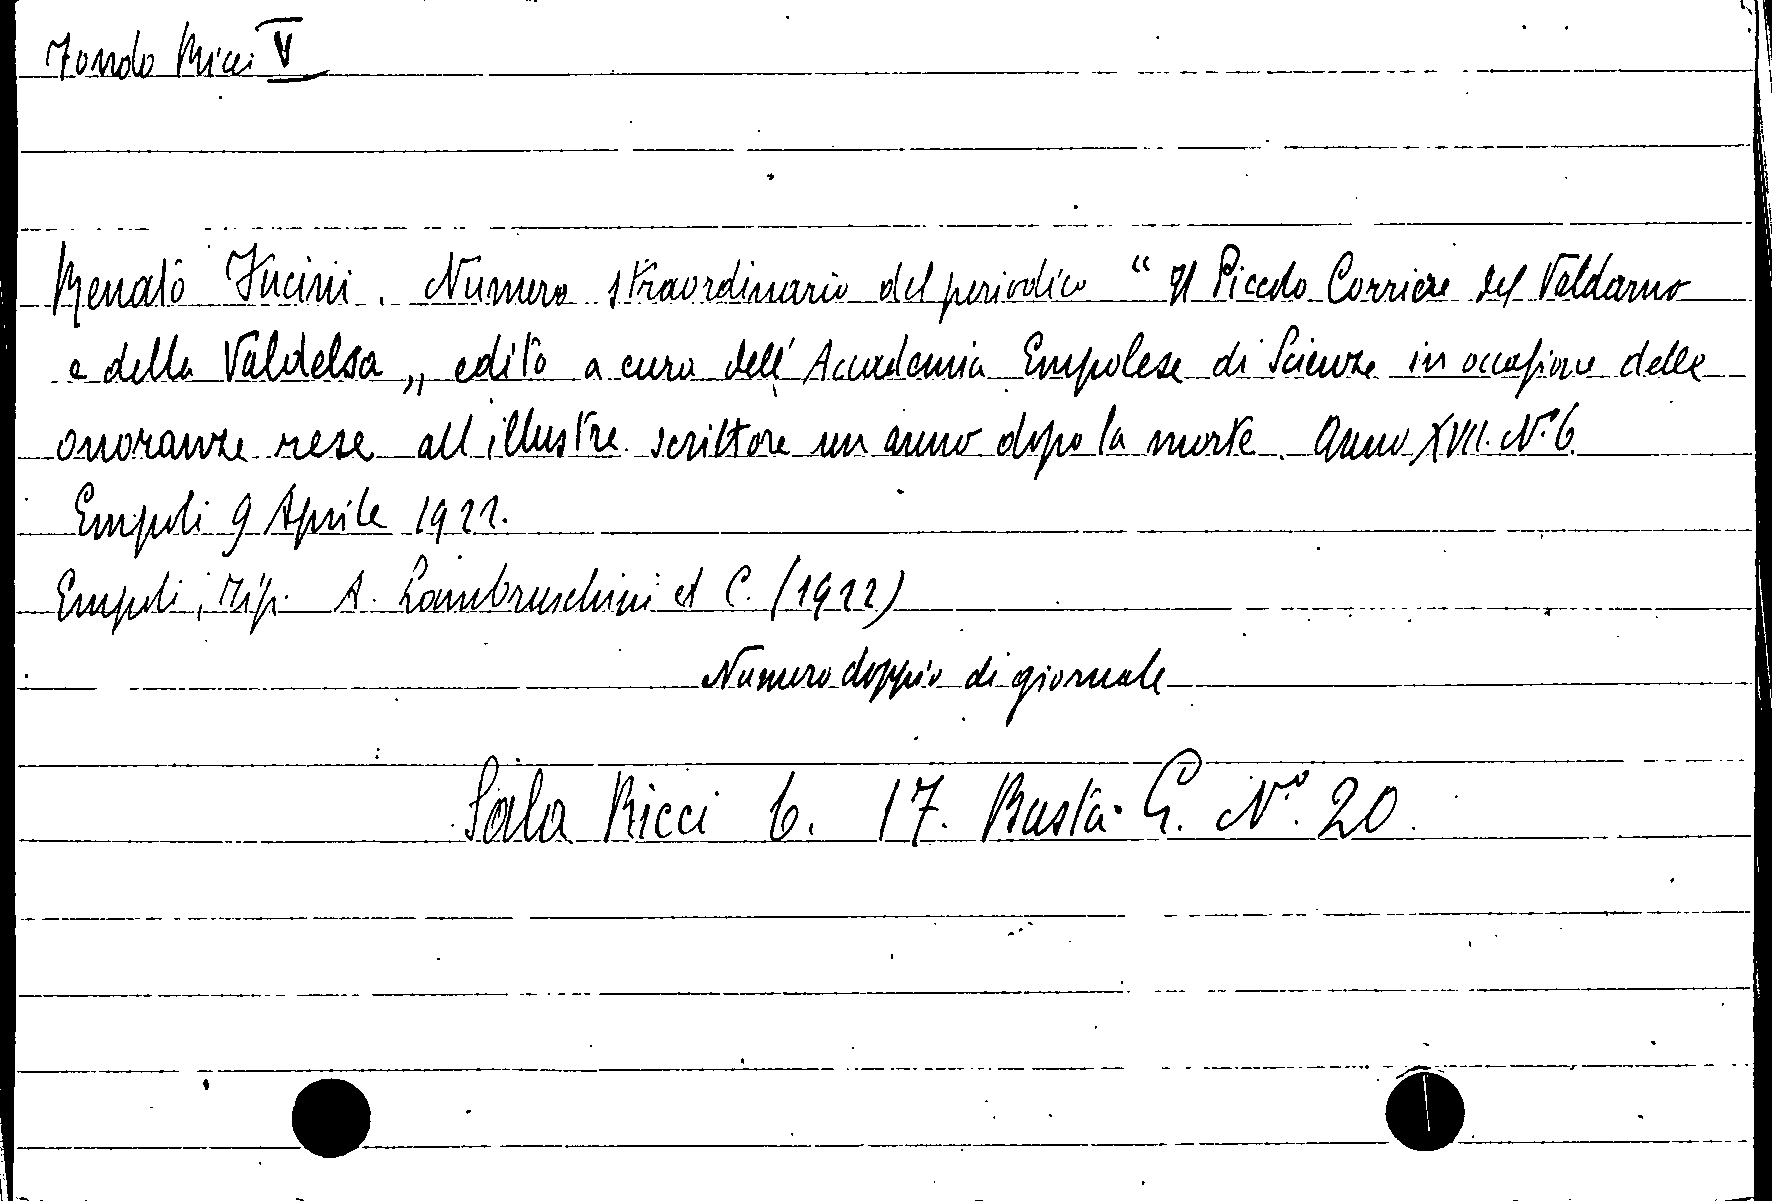 Fondo Ricci V
Renato Fucini. Numero straordinario del periodico " Il Piccolo Corriere del Valdarno
e della Valdelsa „ edito a cura dell' Accademia Empolese di Scienze in occasione delle
onoranze rese all'illustre scrittore un anno dopo la morte. Anno XVII. N.° 6.
Empoli 9 Aprile 1922.
Empoli, Tip. A. Lambruschini et C. (1922)
Numero doppio di giornale
Sala Ricci 6. 17. Busta G. N.° 20.